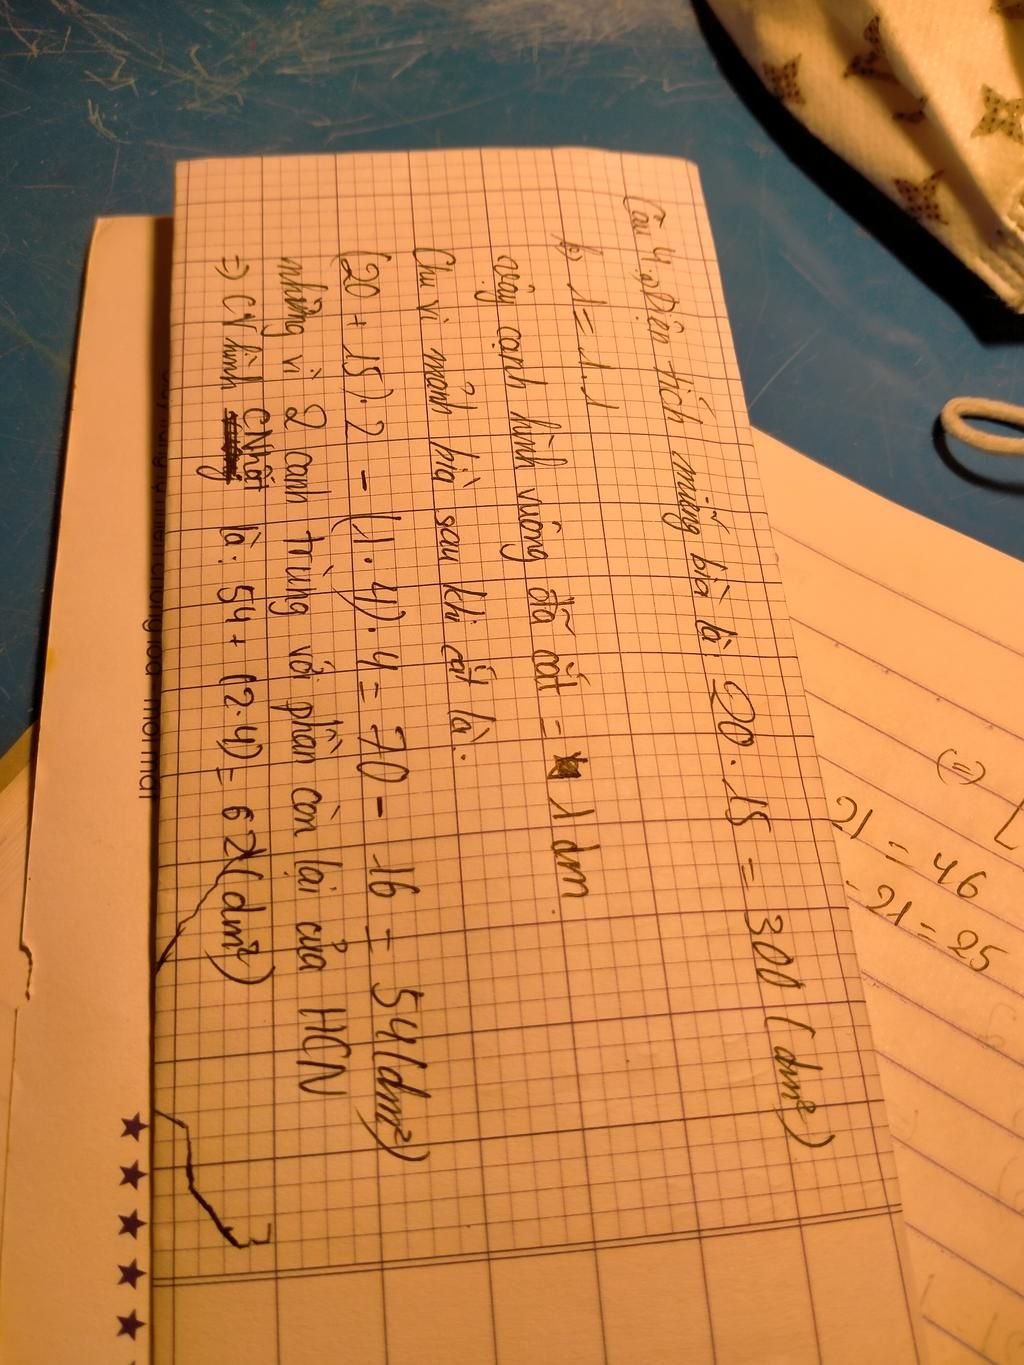 Câu 4. a) Diện tích miếng bìa là: 20 . 15 = 300 (dm²)
b) 1 = 1 . 1
vậy cạnh hình vuông đã cắt = 1 dm
Chu vi mảnh bìa sau khi cắt là:
(20 + 15) . 2 - (1 . 4) . 4 = 70 - 16 = 54 (dm²)
nhưng vì 2 cạnh trùng với phần còn lại của HCN
=) CV hình CNhật là: 54 + (2 . 4) = 62 (dm²)
(=)
21 = 46
-21 = 25